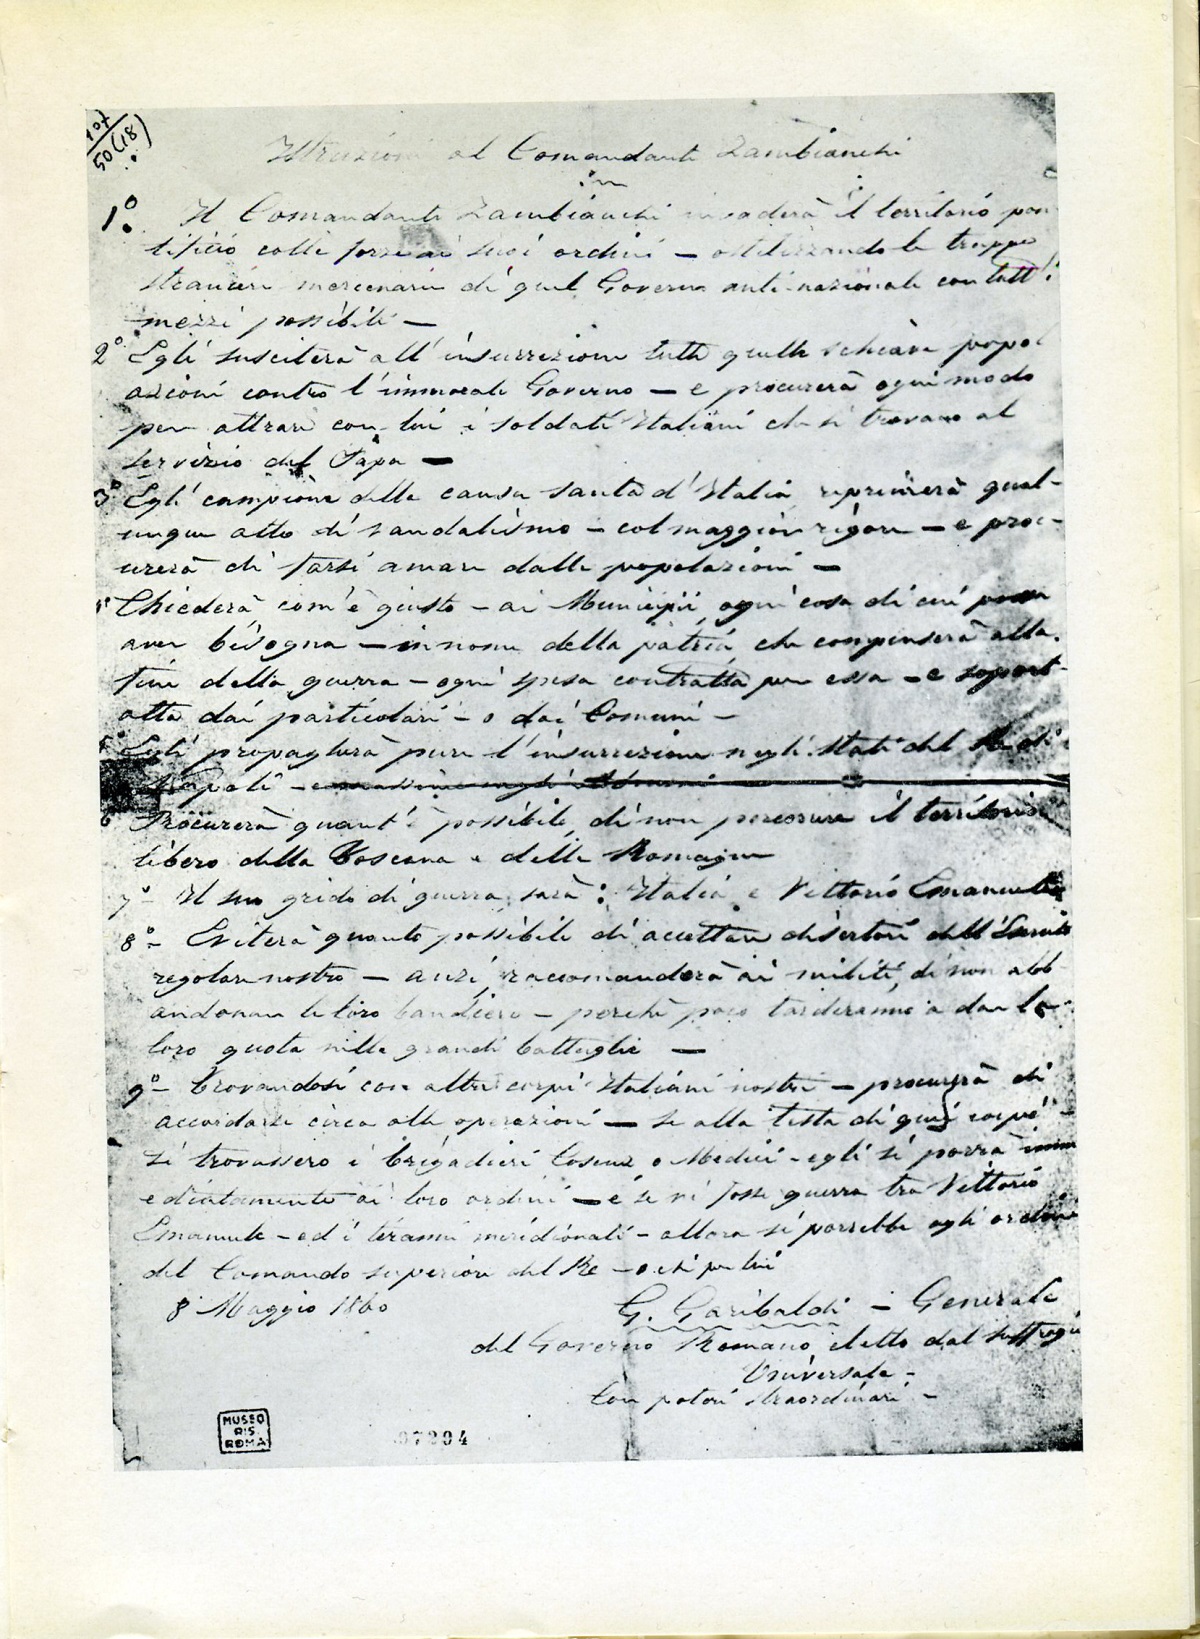 107
50 (18)
Istruzioni al Comandante Zambianchi
1º. Il Comandante Zambianchi invaderà il territorio pon
tificio colle forze ai suoi ordini — ostilizzando le truppe
straniere mercenarie di quel Governo anti-nazionale con tutt'i
mezzi possibili —
2º Egli susciterà all'insurrezione tutte quelle schiave popol
azioni contro l'immorale Governo — e procurerà ogni modo
per attrare con lui i soldati Italiani che si trovano al
servizio del Papa —
3º Egli campione della causa santa d'Italia, reprimerà qual-
unque atto di vandalismo — col maggior rigore — e proc-
urerà di farsi amare dalle popolazioni —
4º Chiederà com'è giusto — ai Municipii, ogni cosa di cui possa
aver bisogna — in nome della patria, che compenserà alla
fine della guerra — ogni spesa contratta per essa — e soport-
atta dai particolari — o dai Comuni —
5º Egli propagherà pure l'insurrezione negli Stati del Re di
Napoli —
6 Procurerà quant'è possibile, di non percorrere il territorio
libero della Toscana e delle Romagne
7º — Il suo grido di guerra sarà: Italia e Vittorio Emanuele
8º — Eviterà quanto possibile di accettare disertori dell'Esercito
regolare nostro — anzi, raccomanderà ai militi, di non abb-
andonare le loro bandiere — perchè poco tarderanno a dare la
loro quota nelle grandi battaglie —
9º — Trovandosi con altri corpi Italiani nostri — procurerà di
accordarsi circa alle operazioni — se alla testa di quei corpi
si trovassero i brigadieri Cosenz o Medici — egli si porrà imm
ediatamente ai loro ordini — e se vi fosse guerra tra Vittorio
Emanuele — ed i tiranni meridionali — allora si porrebbe agli ordini
del Comando superiore del Re — o chi per lui
8 Maggio 1860
G. Garibaldi — Generale
del Governo Romano, eletto dal suffragio
Universale —
Con poteri straordinari —
MUSEO
RIS
ROMA
07294